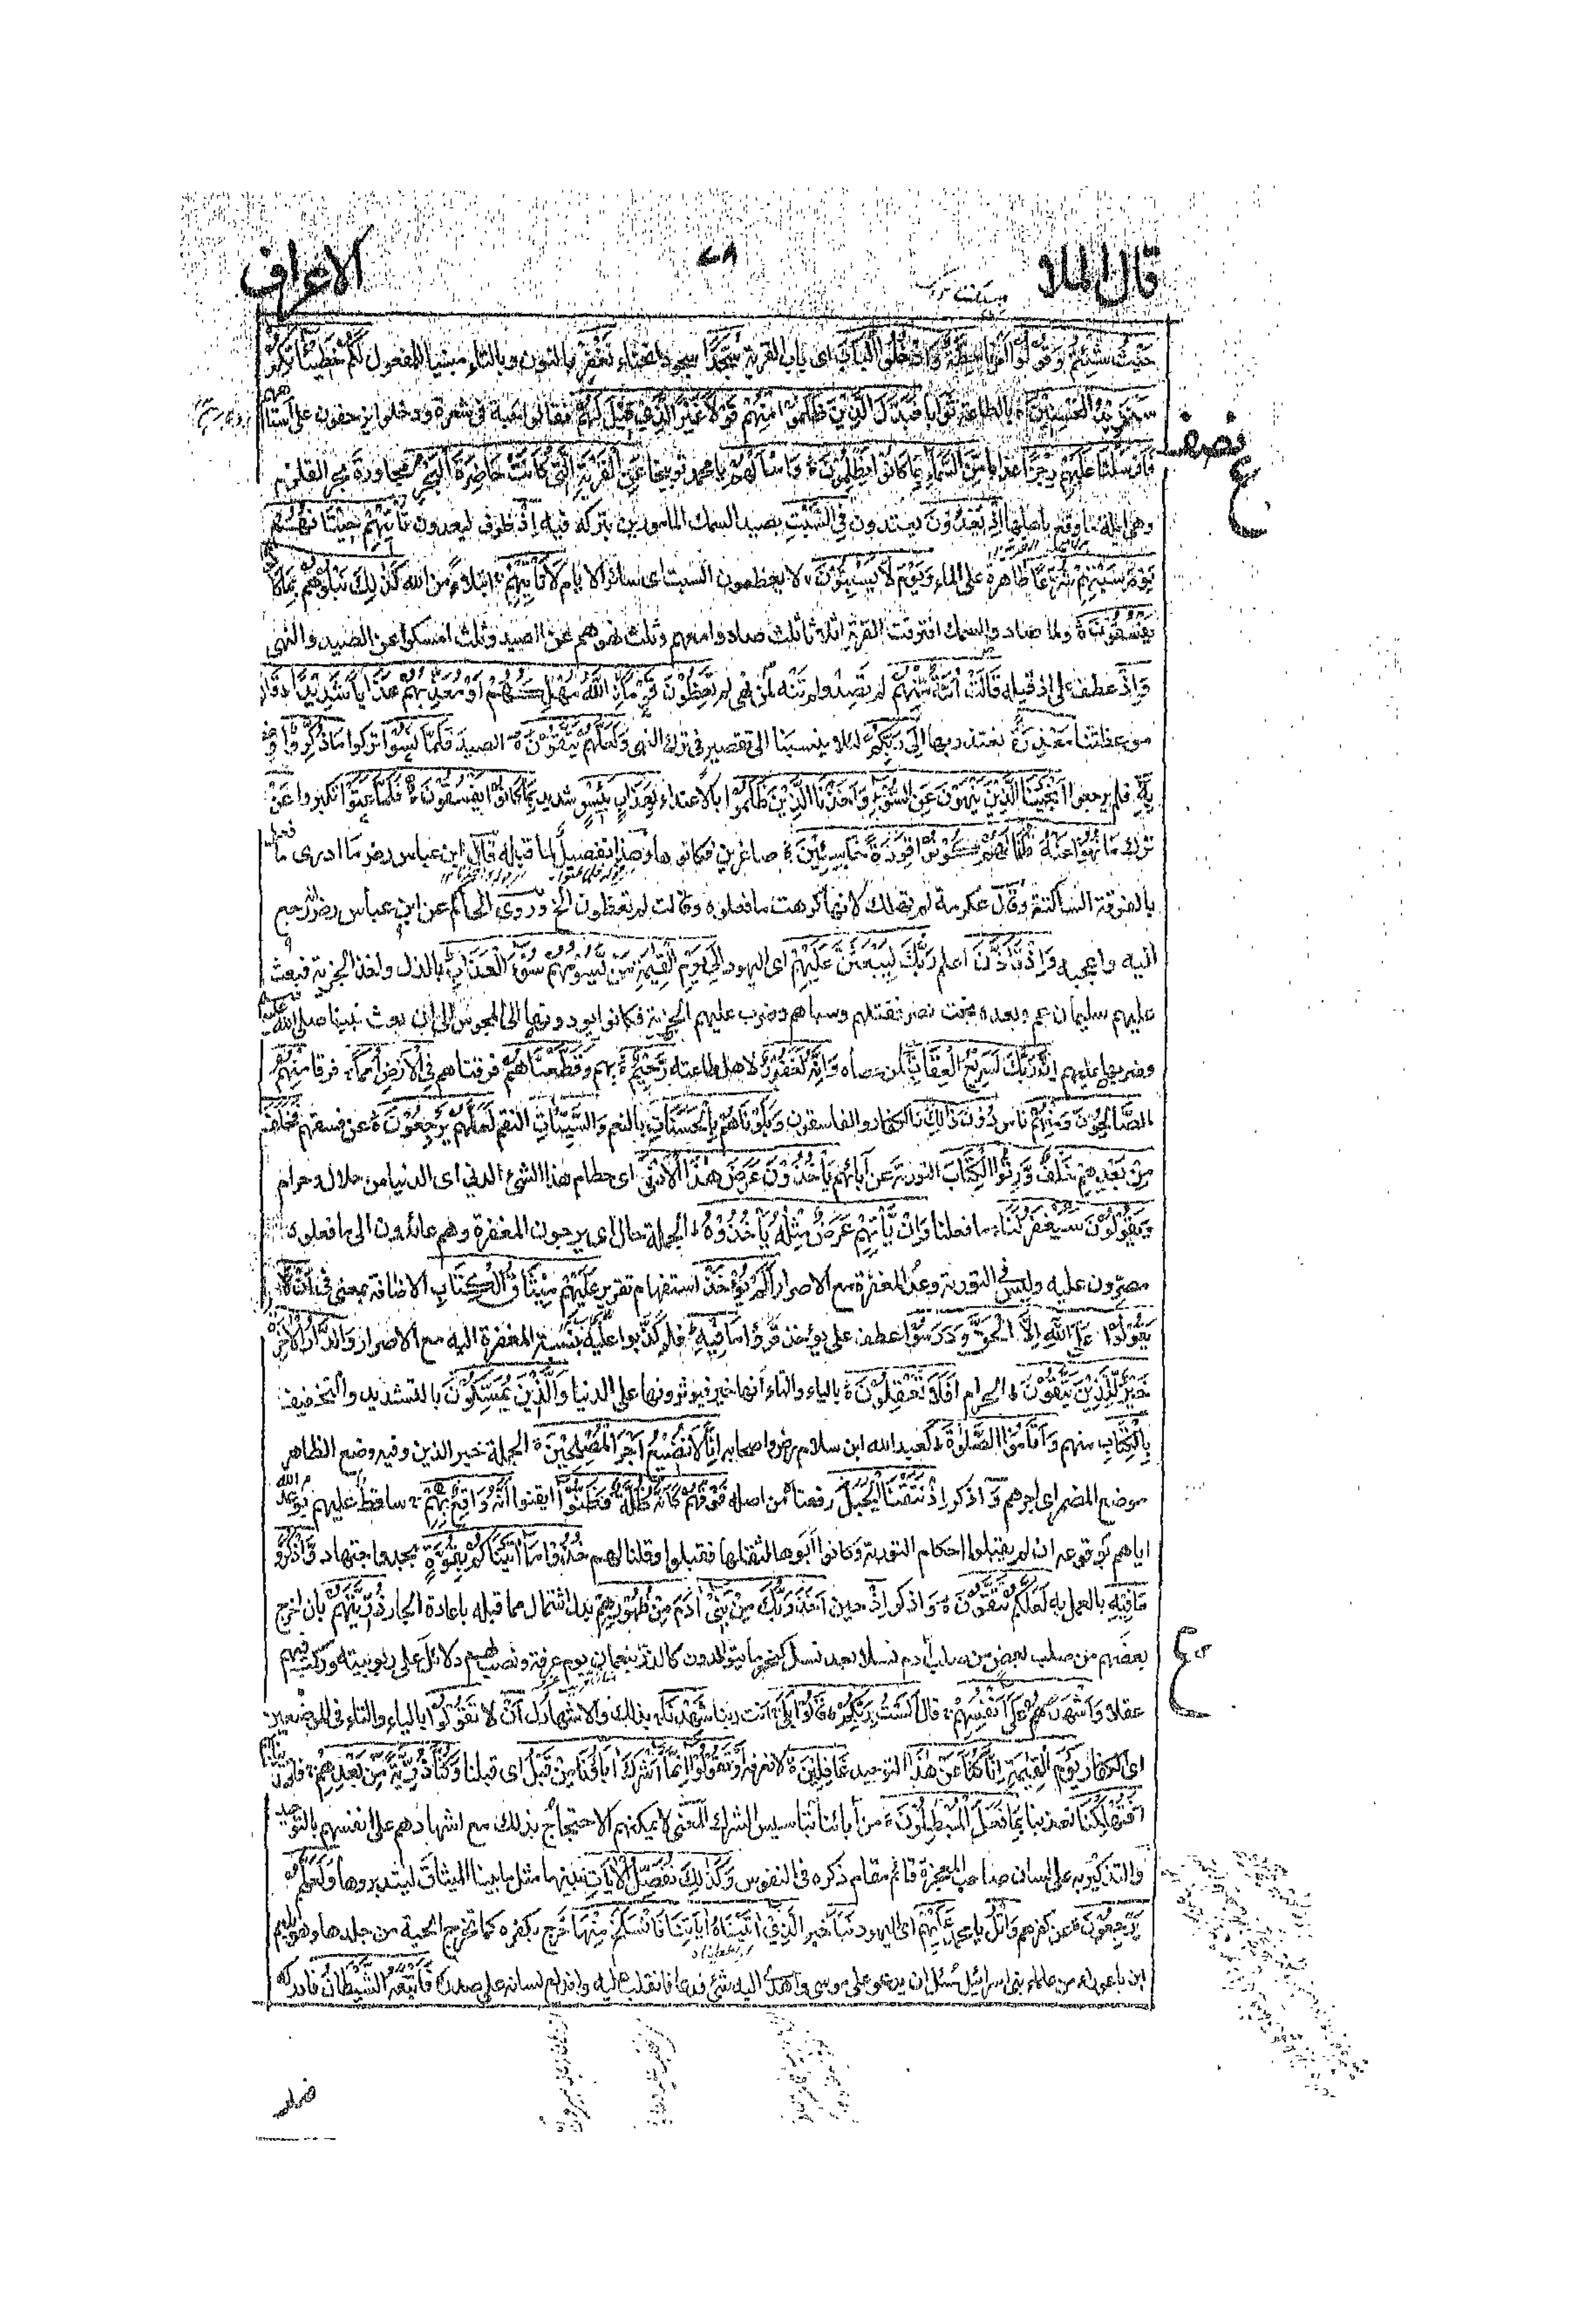 قال الملا ٧٨ الاعراف
حَيْثُ شِئْتُمْ وَقُوْلُوْا امرنا حِطَّةٌ وَّادْخُلُوا الْبَابَ اى باب القرية سُجَّدًا سجود انحناء نَغْفِرْ بالنون وبالتاء مبنيا للمفعول لَكُمْ خَطِيْئَاتِكُمْ
سَنَزِيْدُ الْمُحْسِنِيْنَ ه بالطاعة ثوابا فَبَدَّلَ الَّذِيْنَ ظَلَمُوْا مِنْهُمْ قَوْلًا غَيْرَ الَّذِيْ قِيْلَ لَهُمْ فقالوا حبة فى شعرة ودخلوا يزحفون على استاههم
فَاَرْسَلْنَا عَلَيْهِمْ رِجْزًا عذابا مِّنَ السَّمَاءِ بِمَا كَانُوْا يَظْلِمُوْنَ ه وَاسْاَلْهُمْ يا محمد توبيخا عَنِ الْقَرْيَةِ الَّتِيْ كَانَتْ حَاضِرَةَ الْبَحْرِ مجاورة بحر القلزم
نصف
ع
وهى ايلة ما وقع باهلها اِذْ يَعْدُوْنَ يعتدون فِي السَّبْتِ بصيد السمك المامورين بتركه فيه اِذْ ظرف ليعدون تَاْتِيْهِمْ حِيْتَانُهُمْ
يَوْمَ سَبْتِهِمْ شُرَّعًا ظاهرة على الماء وَيَوْمَ لَا يَسْبِتُوْنَ لا يعظمون السبت اى سائر الايام لَا تَاْتِيْهِمْ ابتلاء من الله كَذٰلِكَ نَبْلُوْهُمْ بِمَا كَانُوْا
يَفْسُقُوْنَ ه ولما صادوا السمك افترقت القرية اثلاثا ثلث صادوا معهم وثلث نهوهم عن الصيد وثلث امسكوا عن الصيد والنهى
وَاِذْ عطف على اذ قبله قَالَتْ اُمَّةٌ مِّنْهُمْ لم تصد ولم تنه لمن نهى لِمَ تَعِظُوْنَ قَوْمًا اللّٰهُ مُهْلِكُهُمْ اَوْ مُعَذِّبُهُمْ عَذَابًا شَدِيْدًا قَالُوْا
موعظتنا مَعْذِرَةً نعتذر بها اِلٰى رَبِّكُمْ لئلا ينسبنا الى تقصير فى ترك النهى وَلَعَلَّهُمْ يَتَّقُوْنَ ه الصيد فَلَمَّا نَسُوْا تركوا مَا ذُكِّرُوْا وعظوا
بِهٖ فلم يرجعوا اَنْجَيْنَا الَّذِيْنَ يَنْهَوْنَ عَنِ السُّوْءِ وَاَخَذْنَا الَّذِيْنَ ظَلَمُوْا بالاعتداء بِعَذَابٍ بَئِيْسٍ شديد بِمَا كَانُوْا يَفْسُقُوْنَ ه فَلَمَّا عَتَوْا تكبروا عَنْ
ترك مَا نُهُوْا عَنْهُ قُلْنَا لَهُمْ كُوْنُوْا قِرَدَةً خَاسِئِيْنَ ه صاغرين فكانوها وهذا تفصيل لما قبله قال ابن عباس رضـ ما ادرى ما فعل
بالفرقة الساكتة وقال عكرمة لم تهلك لانها كرهت ما فعلوه وقالت لم تعظون الخ وروى الحاكم عن ابن عباس رضـ انه رجع
اليه واعجبه وَاِذْ تَاَذَّنَ اعلم رَبُّكَ لَيَبْعَثَنَّ عَلَيْهِمْ اى اليهود اِلٰى يَوْمِ الْقِيٰمَةِ مَنْ يَّسُوْمُهُمْ سُوْءَ الْعَذَابِ بالذل واخذ الجزية فبعث
عليهم سليمان عم وبعده بخت نصر فقتلهم وسباهم وضرب عليهم الجزية فكانوا يؤدونها الى المجوس الى ان بعث نبينا صلى الله عليه وسلم
وضربها عليهم اِنَّ رَبَّكَ لَسَرِيْعُ الْعِقَابِ لمن عصاه وَاِنَّهٗ لَغَفُوْرٌ لاهل طاعته رَّحِيْمٌ ه بهم وَقَطَّعْنَاهُمْ فرقناهم فِي الْاَرْضِ اُمَمًا فرقا مِنْهُمُ
الصَّالِحُوْنَ وَمِنْهُمْ ناس دُوْنَ ذٰلِكَ الكفار والفاسقون وَبَلَوْنَاهُمْ بِالْحَسَنَاتِ بالنعم وَالسَّيِّئَاتِ النقم لَعَلَّهُمْ يَرْجِعُوْنَ ه عن فسقهم فَخَلَفَ
مِنْ بَعْدِهِمْ خَلْفٌ وَّرِثُوا الْكِتَابَ التورية عن آبائهم يَاْخُذُوْنَ عَرَضَ هٰذَا الْاَدْنٰى اى حطام هذا الشئ الدنى اى الدنيا من حلال وحرام
وَيَقُوْلُوْنَ سَيُغْفَرُ لَنَا ما فعلنا وَاِنْ يَّاْتِهِمْ عَرَضٌ مِّثْلُهٗ يَاْخُذُوْهُ ط الجملة حال اى يرجون المغفرة وهم عائدون الى ما فعلوه
مصرون عليه وليس فى التورية وعد المغفرة مع الاصرار اَلَمْ يُؤْخَذْ استفهام تقرير عَلَيْهِمْ مِّيْثَاقُ الْكِتَابِ الاضافة بمعنى فى اَنْ لَّا
يَقُوْلُوْا عَلَى اللّٰهِ اِلَّا الْحَقَّ وَدَرَسُوْا عطف على يؤخذ قرؤا مَا فِيْهِ فلم كذبوا عليه بنسبة المغفرة اليه مع الاصرار وَالدَّارُ الْاٰخِرَةُ
خَيْرٌ لِّلَّذِيْنَ يَتَّقُوْنَ ط الحرام اَفَلَا تَعْقِلُوْنَ ه بالياء والتاء انها خير فيؤثرونها على الدنيا وَالَّذِيْنَ يُمَسِّكُوْنَ بالتشديد والتخفيف
بِالْكِتَابِ منهم وَاَقَامُوا الصَّلٰوةَ ط كعبد الله ابن سلام رضـ واصحابه اِنَّا لَا نُضِيْعُ اَجْرَ الْمُصْلِحِيْنَ ه الجملة خبر الذين وفيه وضع الظاهر
موضع المضمر اى اجرهم وَ اذكر اِذْ نَتَقْنَا الْجَبَلَ رفعناه من اصله فَوْقَهُمْ كَاَنَّهٗ ظُلَّةٌ وَّظَنُّوْا ايقنوا اَنَّهٗ وَاقِعٌ بِهِمْ ساقط عليهم بوعد الله
اياهم بوقوعه ان لم يقبلوا احكام التورية وكانوا ابوها لثقلها فقبلوا وقلنا لهم خُذُوْا مَا اٰتَيْنَاكُمْ بِقُوَّةٍ بجد واجتهاد وَّاذْكُرُوْا
مَا فِيْهِ بالعمل به لَعَلَّكُمْ تَتَّقُوْنَ ه وَ اذكر اِذْ حين اَخَذَ رَبُّكَ مِنْ بَنِيْ اٰدَمَ مِنْ ظُهُوْرِهِمْ بدل اشتمال مما قبله باعادة الجار ذُرِّيَّتَهُمْ بان اخرج
بعضهم من صلب بعض من صلب آدم نسلا بعد نسل كنحو ما يتوالدون كالذر بنعمان يوم عرفة ونصب لهم دلائل على ربوبيته وركب فيهم
ع
عقلا وَاَشْهَدَهُمْ عَلٰى اَنْفُسِهِمْ قال اَلَسْتُ بِرَبِّكُمْ قَالُوْا بَلٰى انت ربنا شَهِدْنَا بذلك والاشهاد ل اَنْ لا تَقُوْلُوْا بالياء والتاء فى الموضعين
اى الكفار يَوْمَ الْقِيٰمَةِ اِنَّا كُنَّا عَنْ هٰذَا التوحيد غَافِلِيْنَ ه لا نعرفه اَوْ تَقُوْلُوْا اِنَّمَا اَشْرَكَ اٰبَاؤُنَا مِنْ قَبْلُ اى قبلنا وَكُنَّا ذُرِّيَّةً مِّنْ بَعْدِهِمْ فاقتدينا بهم
اَفَتُهْلِكُنَا تعذبنا بِمَا فَعَلَ الْمُبْطِلُوْنَ ه من آبائنا بتاسيس الشرك المعنى لا يمكنهم الاحتجاج بذلك مع اشهادهم على انفسهم بالتوحيد
والتذكير به على لسان صاحب المعجزة قائم مقام ذكره فى النفوس وَكَذٰلِكَ نُفَصِّلُ الْاٰيَاتِ نبينها مثل ما بينا الميثاق ليتدبروها وَلَعَلَّهُمْ
يَرْجِعُوْنَ ه عن كفرهم وَاتْلُ يا محمد عَلَيْهِمْ اى اليهود نَبَاَ خبر الَّذِيْ اٰتَيْنَاهُ اٰيَاتِنَا فَانْسَلَخَ مِنْهَا خرج بكفره كما تخرج الحية من جلدها وهو بلعم
ابن باعوراء من علماء بنى اسرائيل سئل ان يدعو على موسى واهدى اليه شئ فدعا فانقلب عليه واندلع لسانه على صدره فَاَتْبَعَهُ الشَّيْطَانُ فادركه